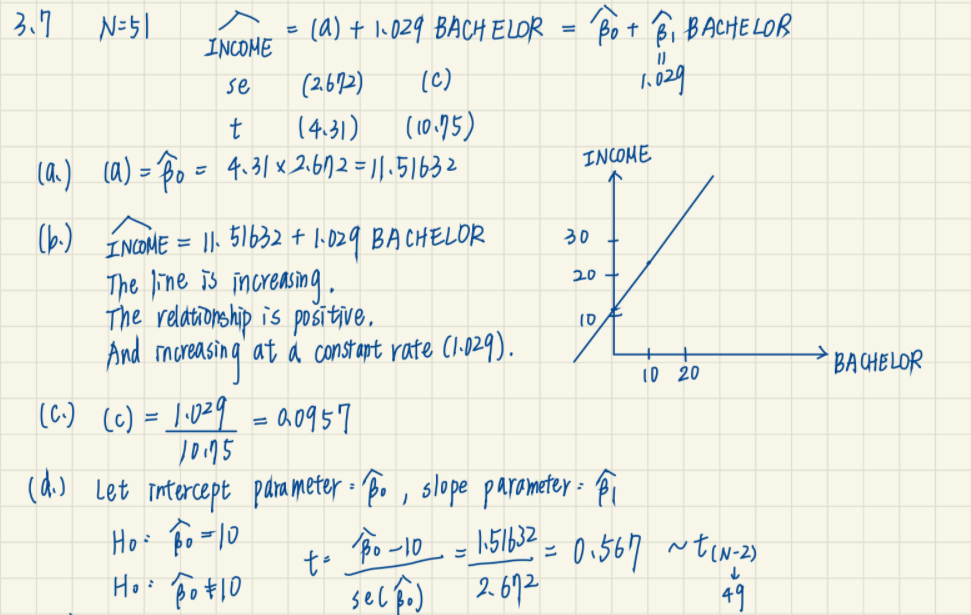 3.7 N=51 INCOME^ = (a) + 1.029 BACHELOR = β̂₀ + β̂₁ BACHELOR
= 1.029
se (2.672) (c)
t (4.31) (10.75)
(a.) (a) = β̂₀ = 4.31 × 2.672 = 11.51632
(b.) INCOME^ = 11.51632 + 1.029 BACHELOR
The line is increasing.
The relationship is positive.
And increasing at a constant rate (1.029).
INCOME
30
20
10
10 20
BACHELOR
(c.) (c) = 1.029 / 10.75 = 0.0957
(d.) Let intercept parameter = β̂₀, slope parameter = β̂₁
H₀: β̂₀ = 10
H₀: β̂₀ ≠ 10
t = (β̂₀ − 10) / se(β̂₀) = 1.51632 / 2.672 = 0.567 ~ t(N-2)
↓
49